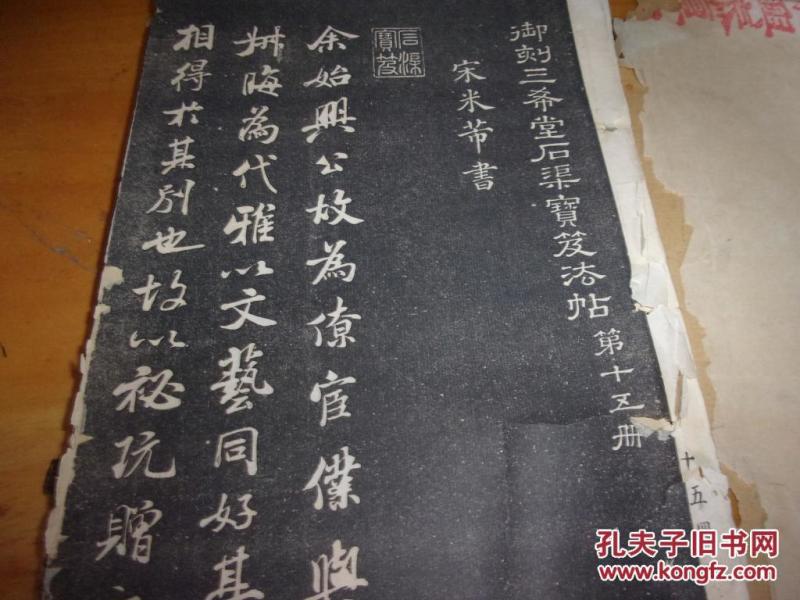 御刻三希堂石渠寶笈法帖 第十五冊
宋米芾書
石渠寶笈
余始興公故為僚宦僕與
叔晦為代雅以文藝同好甚
相得於其別也故以秘玩贈
十五
孔夫子旧书网
www.kongfz.com